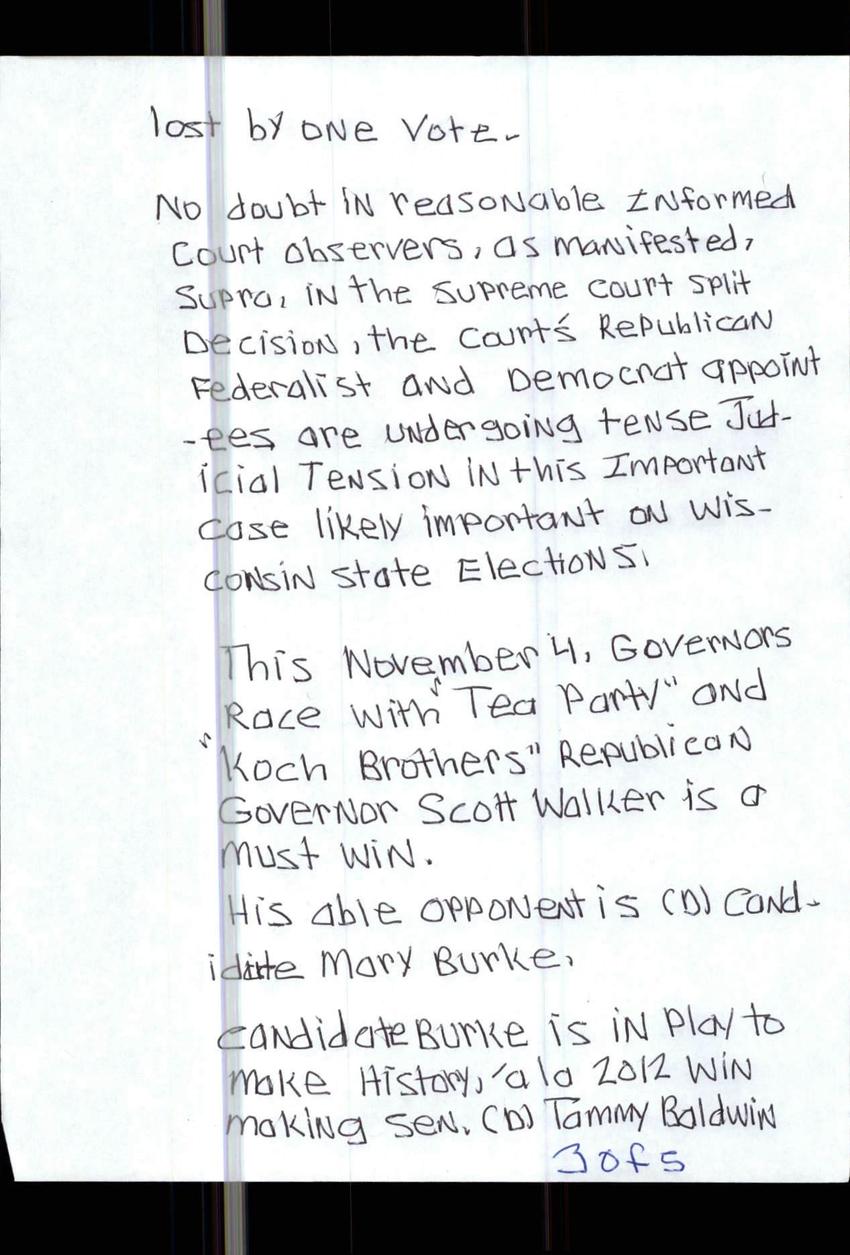 lost by one vote.
No doubt in reasonable Informed
Court observers, as manifested,
Supra, in the Supreme court split
Decision, the Court's Republican
Federalist and Democrat appoint
-ees are undergoing tense Jud-
icial Tension in this Important
case likely important on Wis-
consin state Elections.
This November 4, Governors
Race with "Tea Party" and
"Koch Brothers" Republican
Governor Scott Walker is a
must win.
His able opponent is (D) Cand-
idate Mary Burke.
Candidate Burke is in play to
make History, 'a la 2012 win
making Sen. (D) Tammy Baldwin
3 of 5